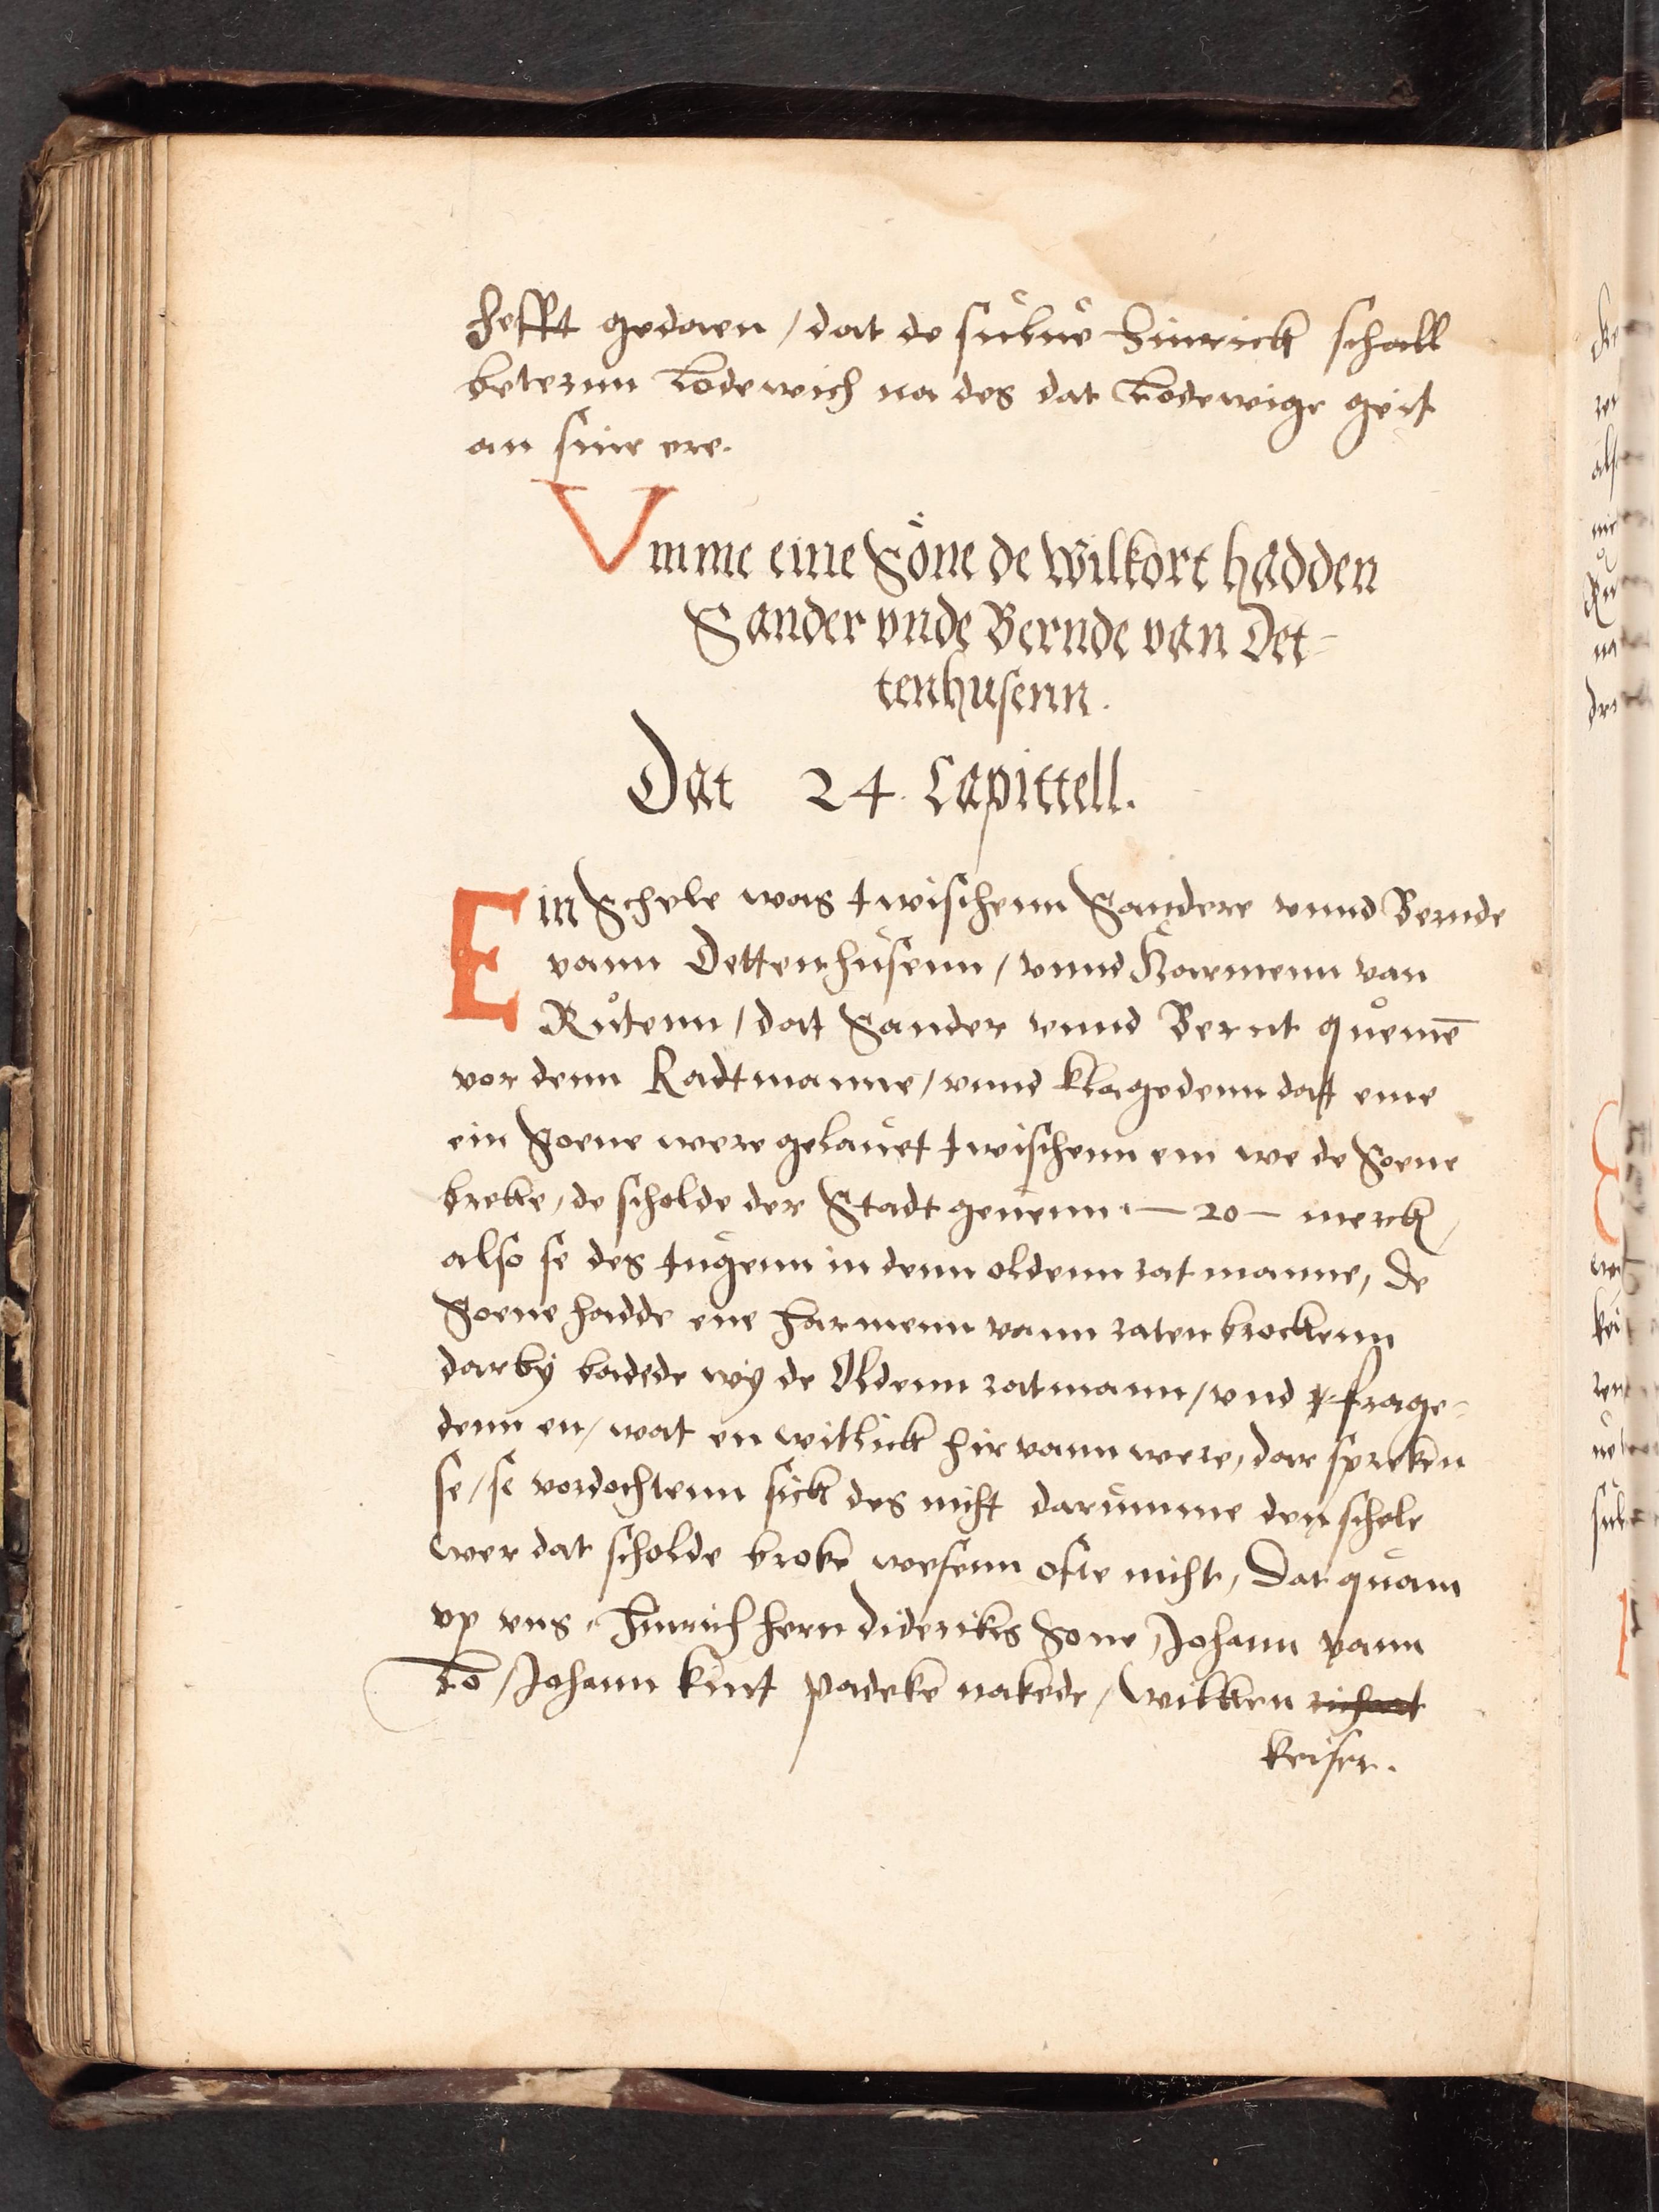 hefft gedaen / dat de sulue Hinrick schall
beterenn Lodewich na des dat Lodewige geit
an sine ere.
Vmme eine Söne de Wilkort hadden
Sander vnde Bernde van Det-
tenhusenn.
Dat 24. Capittell.
Ein Schele was twischenn Sandere vnnd Bernde
vann Dettenhusenn / vnnd Harmenn van
Rutenn / dat Sander vnnd Bernt quemē
vor denn Radtmanne / vnnd klagedenn dat eme
ein Soene were gelauet twischenn em we de Soene
breke, de scholde der Stadt geuenn — 20 — merck /
also se des tugenn in denn oldenn rat manne, De
Soene hadde ene Harmenn vann ruten brockenn
darby badede wy de Oldenn ratmann / vnd frage-
denn en / wat en witlick hir vann were, dar spreken
se / se vordochtenn sick des nicht darumme den schele
wer dat scholde broke wesenn ofte nicht, Dat quam
vp vns. Hinrich hern diderikes Sone, Johann vann
Lo / Johann kint padeke nakede / wilken
keiser.